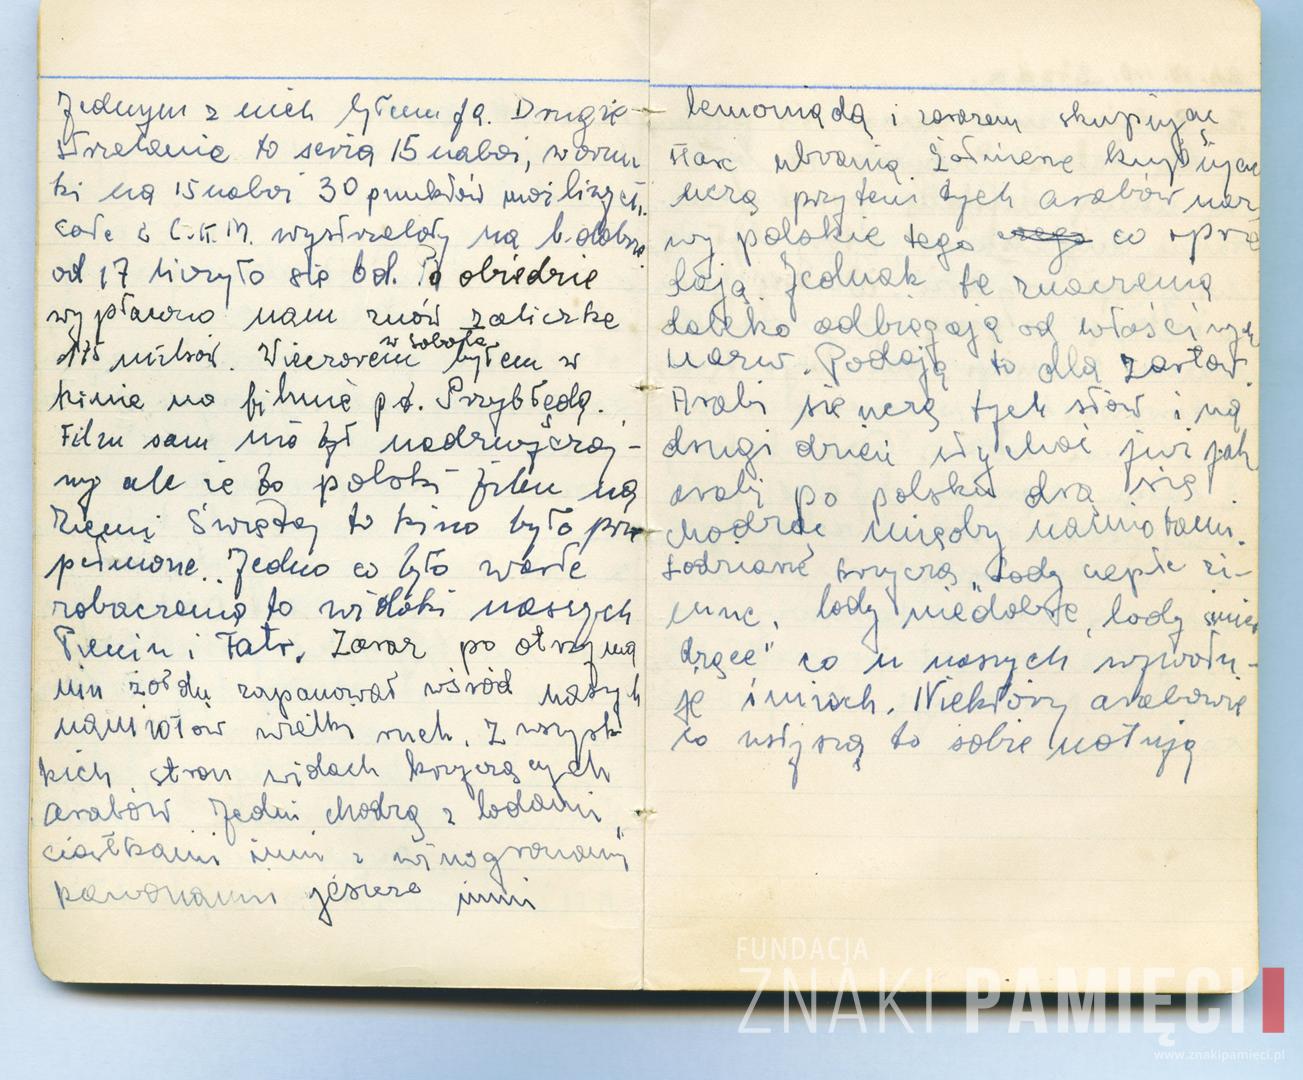 Jednym z nich byłem ja. Drugie
strzelanie to seria 15 naboi, warun
ki na 15 naboi 30 punktów
całe z C.K.M. wystrzelały na b. dobrze
od 17 liczyło się bd. Po obiedzie
wypłacono nam znów zaliczkę
175 milsów. Wieczorem w sobotę byłem w
kinie na filmie p.t. Przybłęda.
Film sam nie był nadzwyczaj-
ny ale że to polski film na
Ziemi Świętej to kino było prze
pełnione. Jedno co było warte
zobaczenia to widoki naszych
Pienin i Tatr. Zaraz po otrzyma
niu żołdu zapanował wśród naszych
namiotów wielki ruch. Z wszyst
kich stron widach krzyczących
arabów Jedni chodzą z lodami,
ciastkami inni z winogronami,
kawonami jeszcze inni
lemoniadą i zarazem skupując
stare ubrania. Żołnierze kupując
uczą przytem tych arabów naz
wy polskie tego czego co sprze
dają. Jednak te znaczenia
daleko odbiegają od właściwych
nazw. Podają to dla żartów.
Arabi się uczą tych słów i na
drugi dzień słychać już jak
arabi po polsku drą się
chodząc między namiotami.
Lodziarze krzyczą „Lody ciepłe zi-
mne, lody niedobre, lody śmier
dzące" co u naszych wywołu-
je śmiech. Niektórzy arabowie
co usłyszą to sobie notują
FUNDACJA
ZNAKI PAMIĘCI
www.znakipamieci.pl